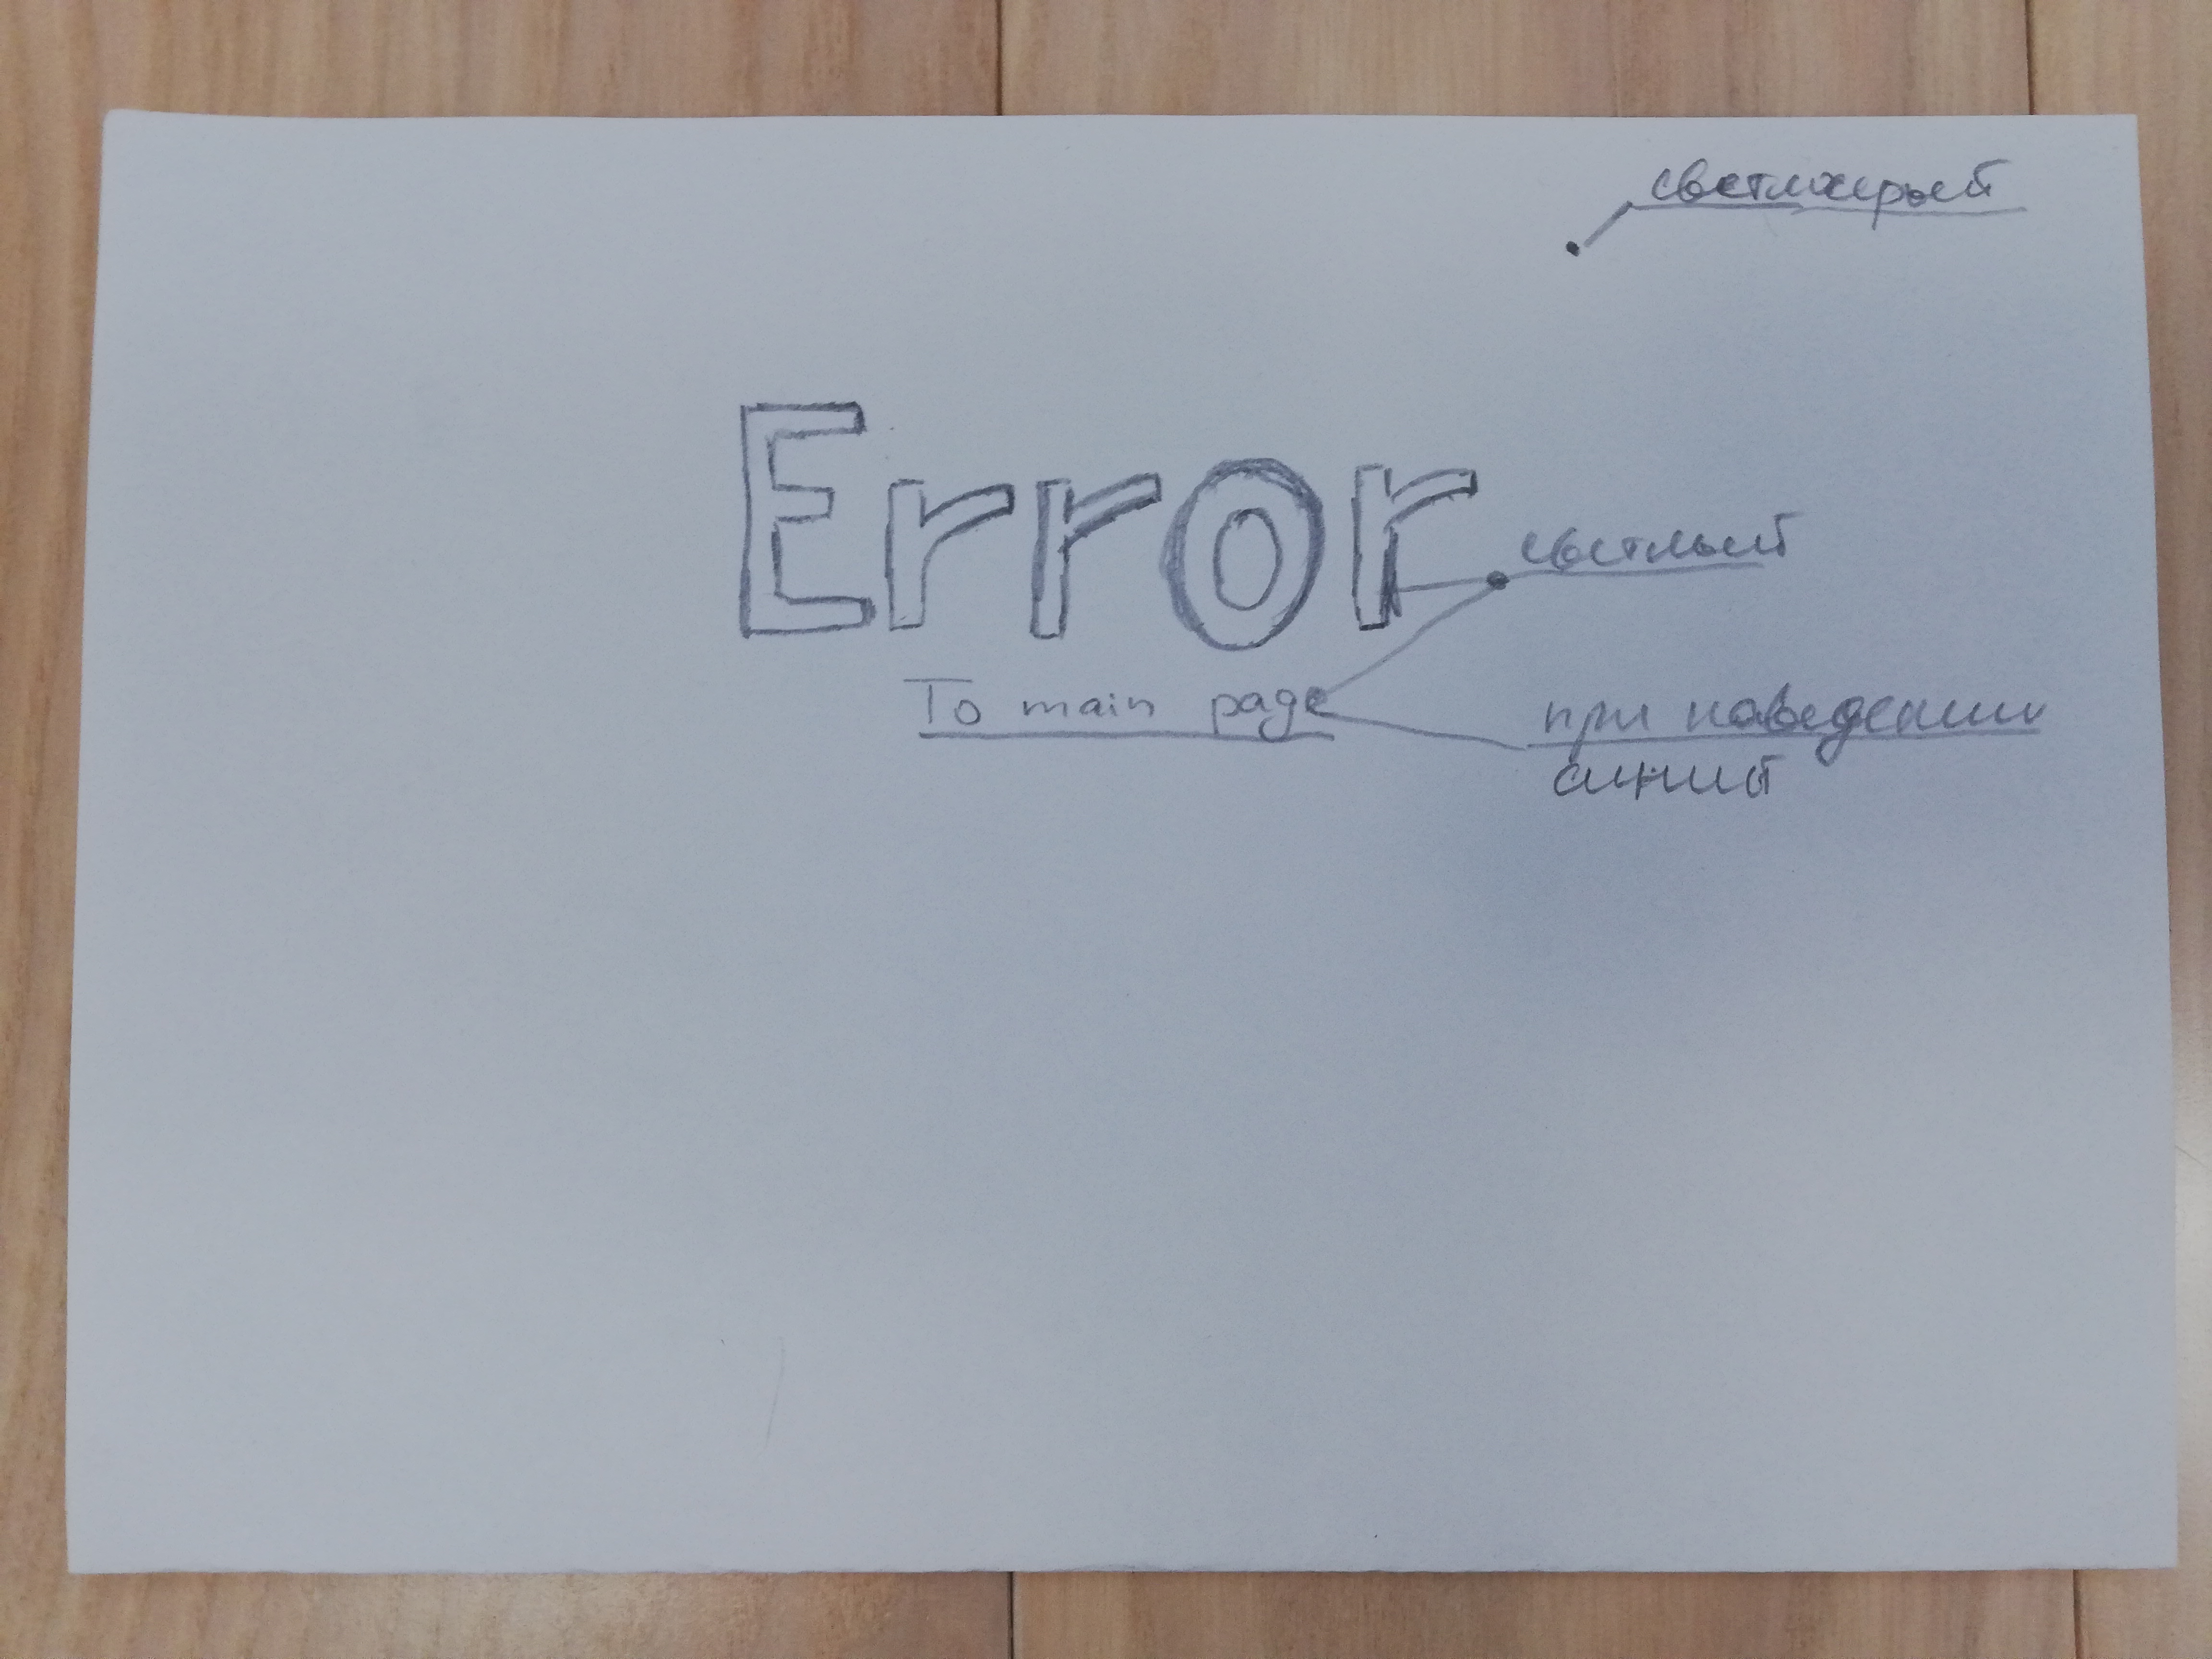 светлосерый
Error
светлый
To main page
при наведении
синий